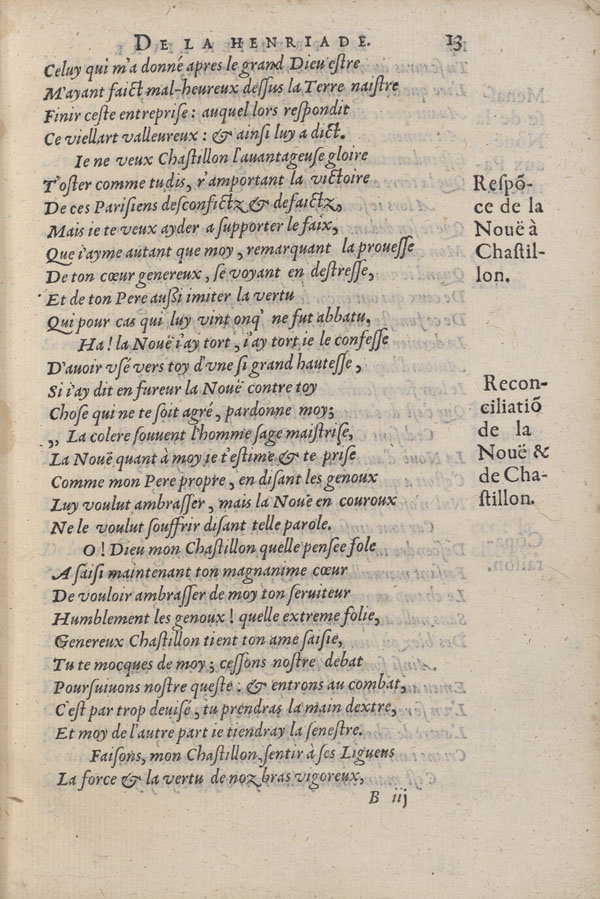 DE LA HENRIADE. 13
Celuy qui m'a donné apres le grand Dieu estre
M'ayant faict mal-heureux dessus la Terre naistre
Finir ceste entreprise: auquel lors respondit
Ce viellart valleureux: & ainsi luy a dict.
Ie ne veux Chastillon l'auantageuse gloire
T'oster comme tu dis, r'amportant la victoire
De ces Parisiens desconfictz & defaictz,
Mais ie te veux ayder a supporter le faix,
Que i'ayme autant que moy, remarquant la prouesse
De ton cœur genereux, se voyant en destresse,
Et de ton Pere aussi imiter la vertu
Qui pour cas qui luy vint onq' ne fut abbatu.
Respõ-
ce de la
Nouë à
Chastil-
lon.
Ha! la Nouë i'ay tort, i'ay tort ie le confesse
D'auoir vsé vers toy d'vne si grand hautesse,
Si i'ay dit en fureur la Nouë contre toy
Chose qui ne te soit agré, pardonne moy;
,, La colere souuent l'homme sage maistrise,
La Nouë quant à moy ie t'estime & te prise
Comme mon Pere propre, en disant les genoux
Luy voulut ambrasser, mais la Nouë en couroux
Ne le voulut souffrir disant telle parole.
Recon-
ciliatiõ
de la
Nouë &
de Cha-
stillon.
O! Dieu mon Chastillon quelle pensee fole
A saisi maintenant ton magnanime cœur
De vouloir ambrasser de moy ton seruiteur
Humblement les genoux! quelle extreme folie,
Genereux Chastillon tient ton ame saisie,
Tu te mocques de moy; cessons nostre debat
Poursuiuons nostre queste: & entrons au combat,
C'est par trop deuisé, tu prendras la main dextre,
Et moy de l'autre part ie tiendray la senestre.
Faisons, mon Chastillon, sentir à ses Ligueus
La force & la vertu de noz bras vigoreux,
B iij